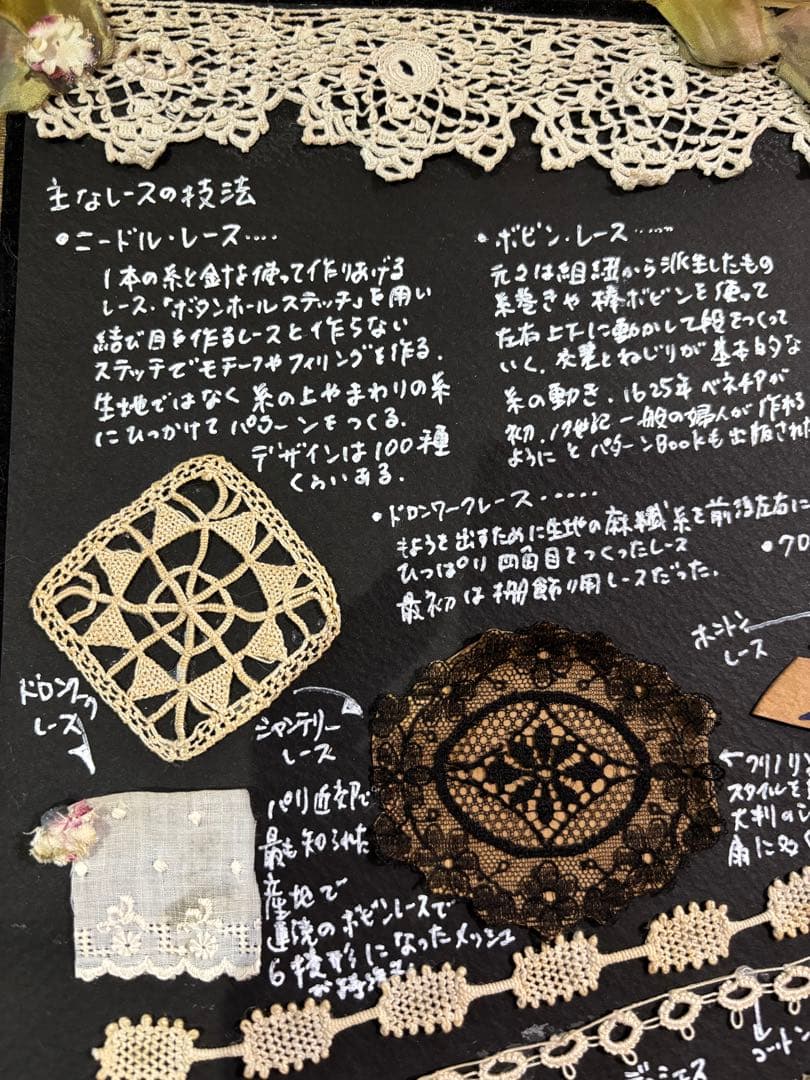 主なレースの技法
•ニードル・レース....
1本の糸と針を使って作りあげる
レース.「ボタンホールステッチ」を用い
結び目を作るレースと作らない
ステッチでモチーフやフィリングを作る.
生地ではなく 糸の上やまわりの糸
にひっかけて パターンをつくる.
デザインは100種
くらいある.
•ボビン・レース......
元々は組紐から派生したもの
糸巻きや棒ボビンを使って
左右上下に動かして段をつくって
いく. 交差とねじりが基本的な
糸の動き. 1625年 ベネチアが
初. 17世紀 一般の婦人が作れる
ようにと パターンBookも出版された
•ドロンワークレース......
もようを出すために生地の麻繊糸を前後左右に
ひっぱり 四角目をつくったレース
最初は棚飾り用レースだった.
•クロ
ホニトン
レース
ドロンワーク
レース
シャンテリー
レース
パリ近郊で
最も知られた
産地で
連続のボビンレースで
6稜形になったメッシュ
が特徴
←クリノリン
スタイルを
大判の
扇に
コットン